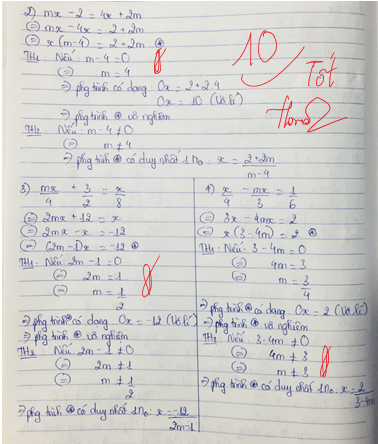 2) mx - 2 = 4x + 2m
⇔ mx - 4x = 2 + 2m
⇔ x(m-4) = 2 + 2m ⊛
TH1: Nếu m-4 = 0
⇔ m = 4
⇒ phg trình có dạng: 0x = 2+2.4
0x = 10 (Vô lí)
⇒ phg trình ⊛ vô nghiệm
TH2: Nếu m-4 ≠ 0
⇔ m ≠ 4
⇒ phg trình ⊛ có duy nhất 1 No: x = (2+2m)/(m-4)
10
Tốt
3) mx/4 + 3/2 = x/8
⇔ 2mx + 12 = x
⇔ 2mx - x = -12
⇔ (2m-1)x = -12 ⊛
TH1: Nếu 2m-1 = 0
⇔ 2m = 1
⇔ m = 1/2
⇒ phg trình ⊛ có dạng 0x = -12 (Vô lí)
⇒ phg trình ⊛ vô nghiệm
TH2: Nếu 2m-1 ≠ 0
⇔ 2m ≠ 1
⇔ m ≠ 1/2
⇒ phg trình ⊛ có duy nhất 1 No: x = -12/(2m-1)
4) x/4 - mx/3 = 1/6
⇔ 3x - 4mx = 2
⇔ x(3-4m) = 2 ⊛
TH1: Nếu 3-4m = 0
⇔ 4m = 3
⇔ m = 3/4
⇒ phg trình ⊛ có dạng 0x = 2 (Vô lí)
⇒ phg trình ⊛ vô nghiệm
TH2: Nếu 3-4m ≠ 0
⇔ 4m ≠ 3
⇔ m ≠ 3
⇒ phg trình ⊛ có duy nhất 1 No: x = 2/(3-4m)